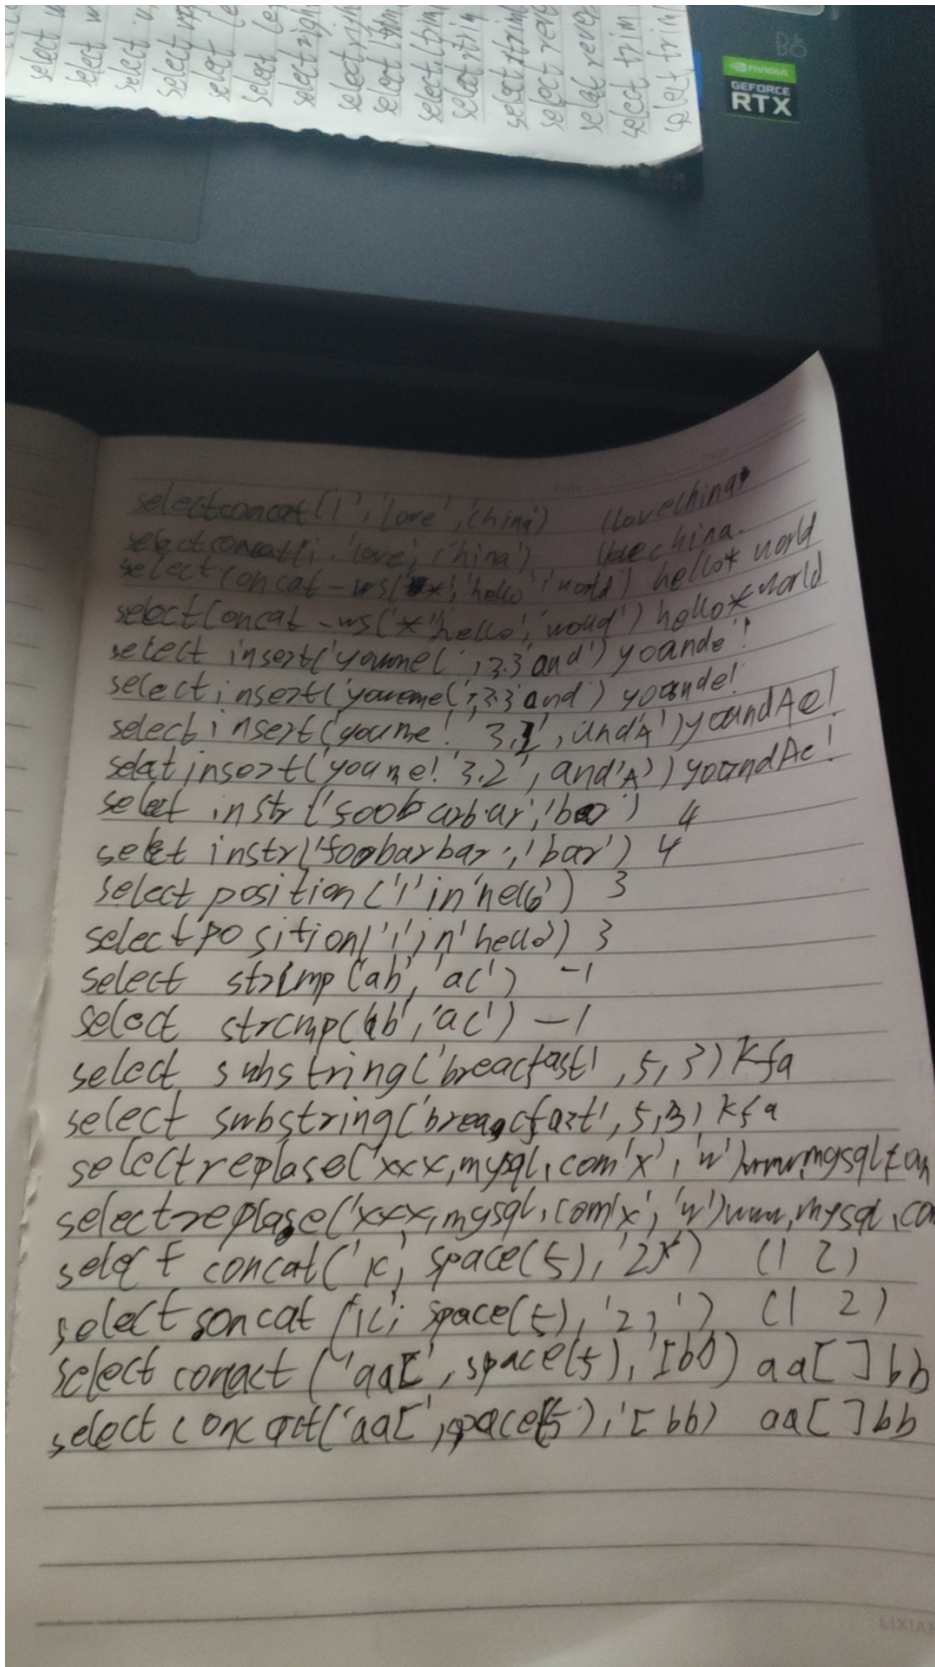 select
select
select
select
select
select
select right
select right
select ltrim
select ltrim
select rtrim
select trim
select rever
select rever
select trim
select trim
B8
NVIDIA
GEFORCE
RTX
selectconcat('I','love','china') Ilovechina
selectconcat(i.'love','china') love china.
select concat-ws('*','hello' 'world') hello* world
select Concat-ws('*''hello','woud') hello*world
select insert('youme(',3.3'and') yoande!
select insert('youeme(',3.3'and) yoande!
select insert('youme!' 3,2',and'A')yoandAe!
selat insert('youme!'3.2',and'A'))yoandAe!
select instr('soobarbar','bar') 4
select instr('foobarbar','bar') 4
select position('l'in'hello') 3
select position('l'in'hello) 3
select strcmp(ab','ac') -1
select strcmp(ab','ac') -1
select substring('breacfast',5,3)kfa
select substring('breacfast',5,3)kfa
selectreplase('xxx,mysql,com'x','w')www,mysql,com
selectreplase('xxx,mysql,com'x','w')www,mysql,co
select concat('1c', space(5),'2x') (1 2)
select soncat('1c', space(5),'2,') (1 2)
select conact('aa[',space(5),'[bb) aa[ ]bb
select concact('aa[',space(5'),'[bb) aa[ ]bb
LIXIA